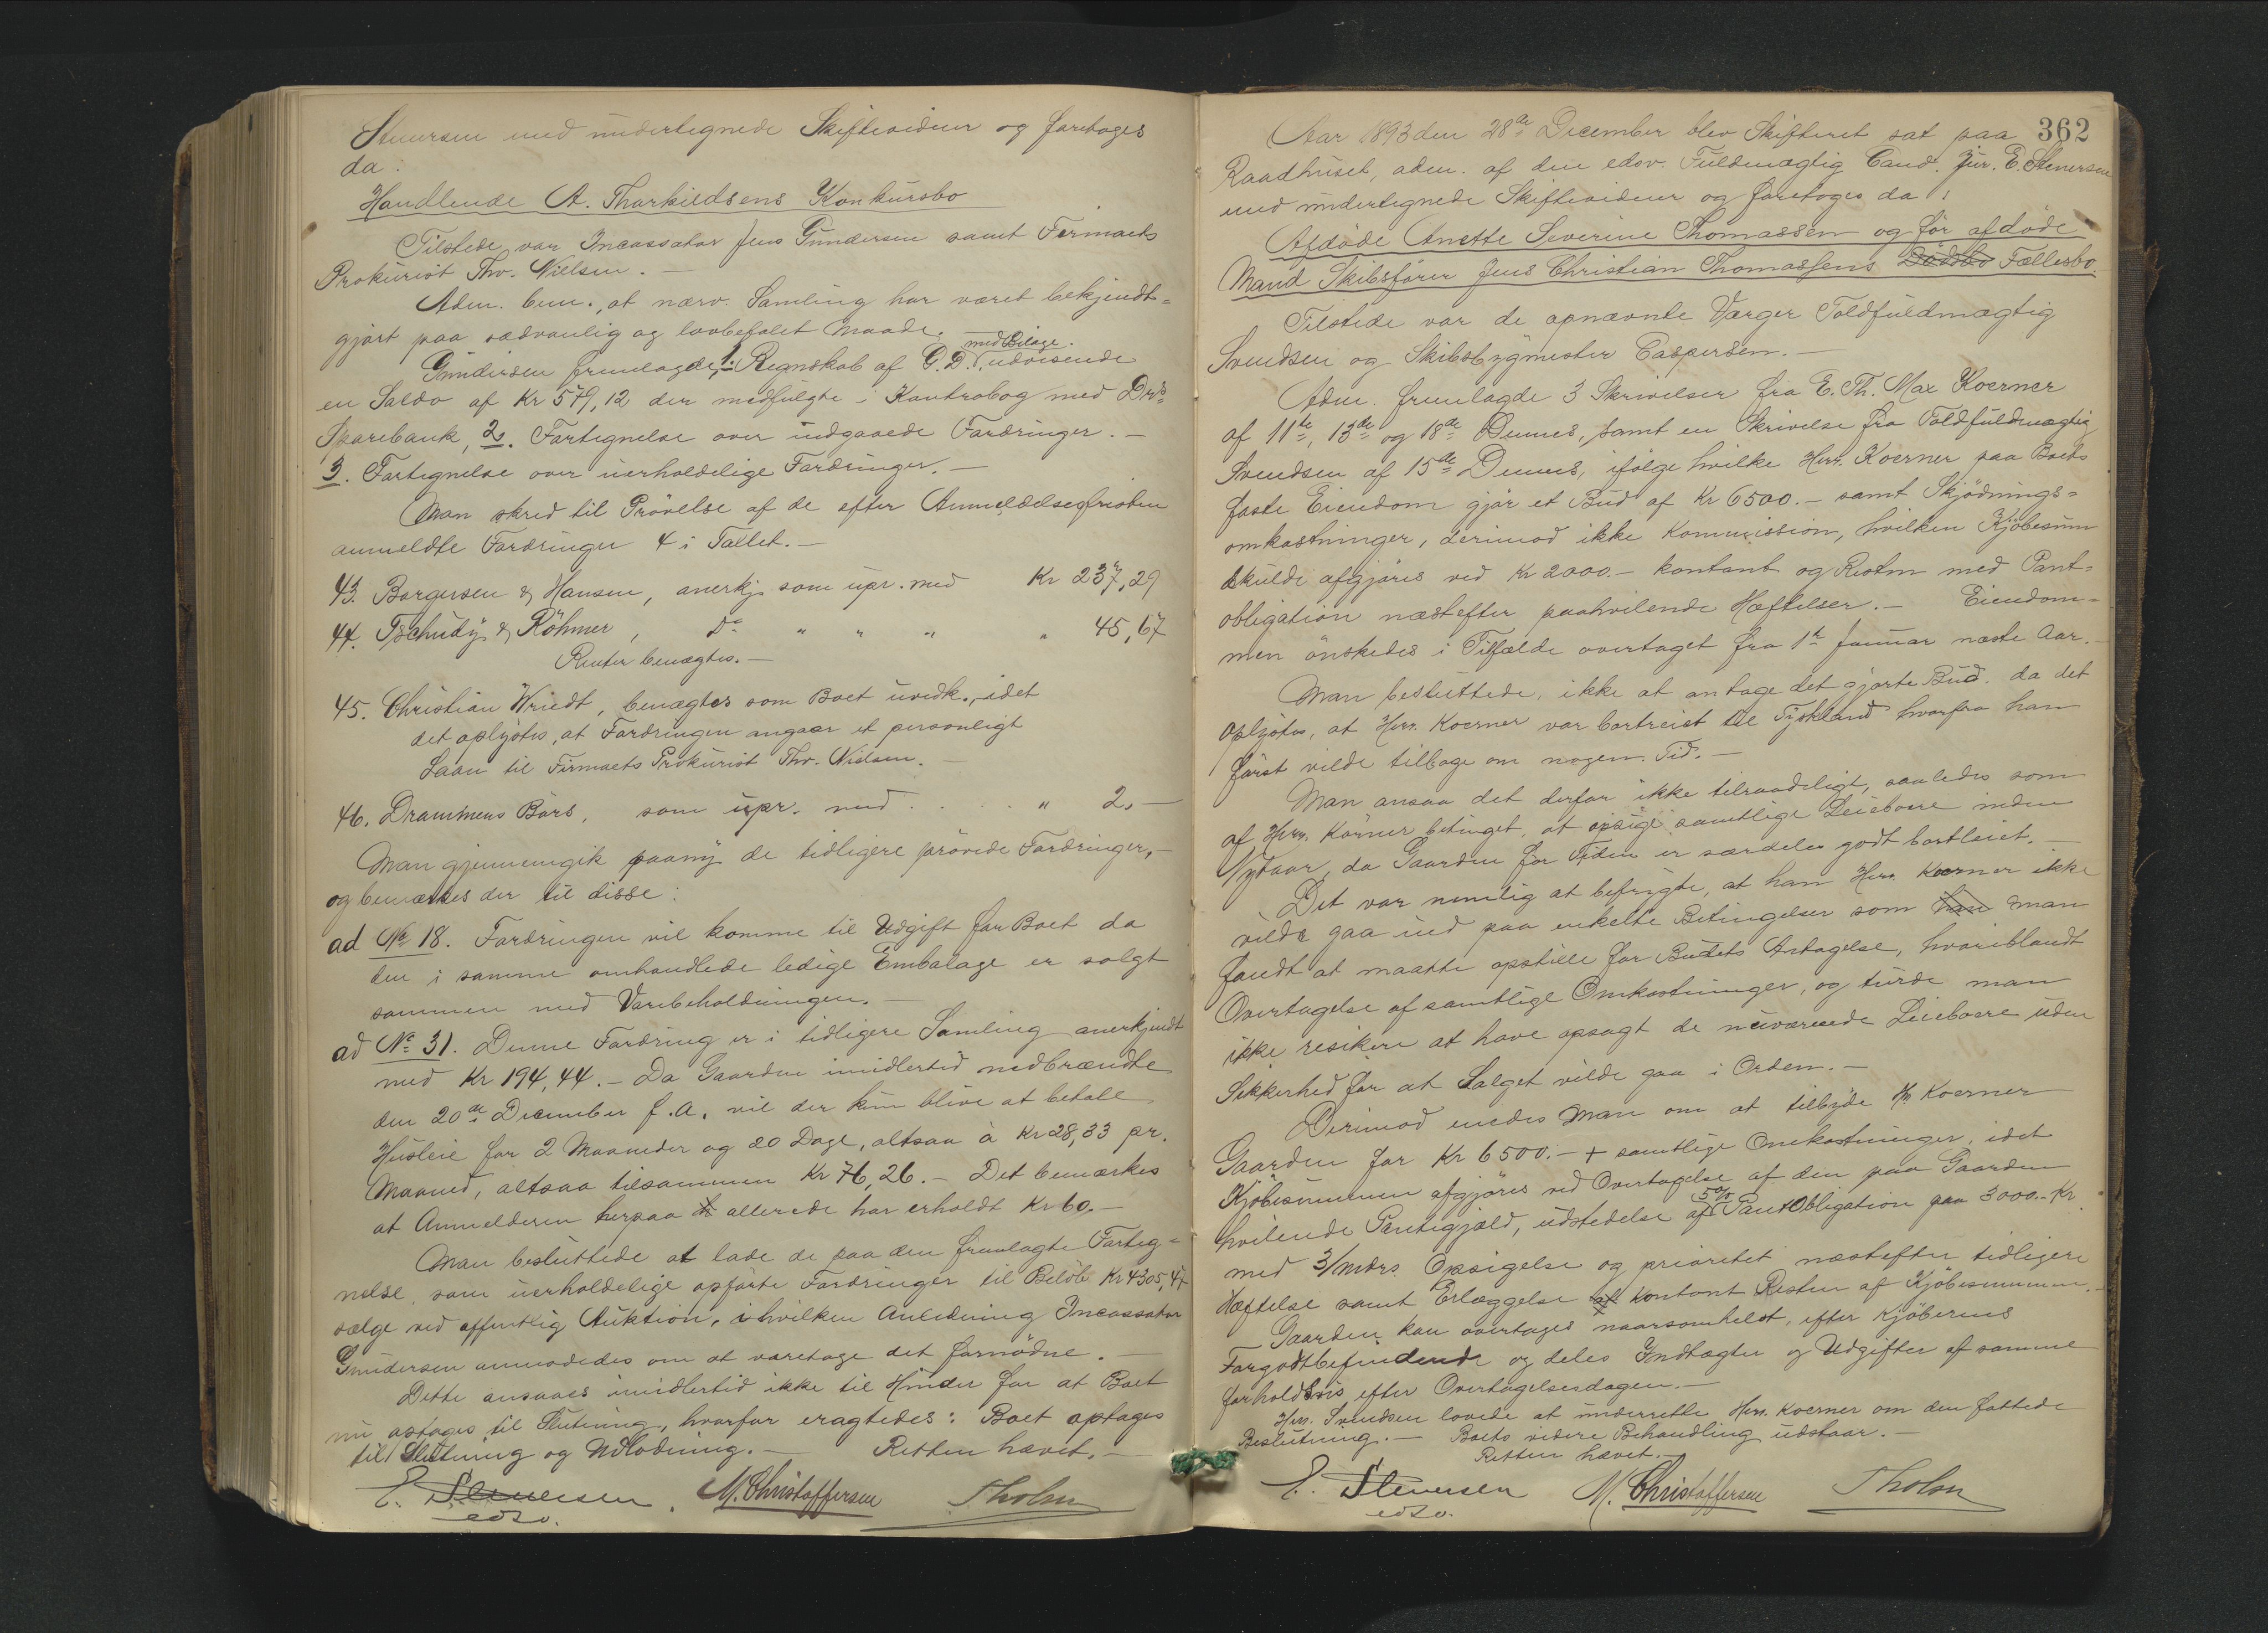 Stenersen med undertegnede Skiftevidner og foretoges
da:
Handlende A. Thorkildsens Konkursbo
Tilstede var Incassator Jens Gundersen samt Firmaets
Prokurist Thv. Nielsen. —
Adm. bem., at nærv. Samling har været bekjendt=
gjort paa sædvanlig og lovbefalet Maade. —
Gundersen fremlagde, 1. Regnskab af G. D. med Bilage. udvisende
en Saldo af Kr 579,12 der medfulgte i Kontrabog med Drs
Sparebank, 2. Fortegnelse over indgaaede Fordringer. —
3. Fortegnelse over uerholdelige Fordringer. —
Man skred til Prövelse af de efter Anmeldelsesfristen
anmeldte Fordringer 4 i Tallet. —
43. Borgersen & Hansen, anerkj. som upr. med Kr 237,29
44. Tschudy & Röhmer, Do " " " " 45,67
Renter benægtes. —
45. Christian Wriedt, benægtes som Boet uvedk., idet
det oplystes, at Fordringen angaar et personligt
Laan til Firmaets Prokurist Thv. Nielsen. —
46. Drammens Börs, som upr. med . . . . " 2,—
Man gjennemgik paany de tidligere prövede Fordringer, —
og bemærkes der til disse:
ad No 18. Fordringen vil komme til Udgift for Boet da
den i samme omhandlede ledige Embalage er solgt
sammen med Varebeholdningen. —
ad No 31. Denne Fordring er i tidligere Samling anerkjendt
med Kr 194,44. — Da Gaarden imidlertid nedbrændte
den 20de December f. A. vil der kun blive at betale
Husleie for 2 Maaneder og 20 Dage, altsaa à Kr 28,33 pr.
Maaned, altsaa tilsammen Kr 76,26. — Det bemærkes
at Anmelderen herpaa allerede har erholdt Kr 60. —
Man besluttede at lade de paa den fremlagte Forteg=
nelse, som uerholdelige opförte Fordringer til Belöb Kr 4305,47
sælge ved offentlig Auktion, i hvilken Anledning Incassator
Gundersen anmodedes om at varetage det fornödne. —
Dette ansaaes imidlertid ikke til Hinder for at Boet
nu optages til Slutning, hvorfor eragtedes: Boet optages
til Slutning og Udlodning. — Retten hævet. —
E. Stenersen M. Christoffersen Tholsn
edsv.
362
Aar 1893 den 28de December blev Skifteret sat paa
Raadhuset, adm. af den edsv. Fuldmægtig Cand. jur. E. Stenersen
med undertegnede Skiftevidner og foretoges da:
Afdöde Anette Severine Thomassen og för afdöde
Mand Skibsförer Jens Christian Thomassens Dödsbo Fællesbo.
Tilstede var de opnævnte Værger Toldfuldmægtig
Svendsen og Skibsbygmester Caspersen. —
Adm. fremlagde 3 Skrivelser fra E. Th. Max Koerner
af 11te, 13de og 18de Dennes, samt en Skrivelse fra Toldfuldmægtig
Svendsen af 15de Dennes, ifölge hvilke Herr. Koerner paa Boets
faste Eiendom gjör et Bud af Kr 6500.— samt Skjödnings=
omkostninger, derimod ikke Kommission, hvilken Kjöbesum
skulde afgjöres ved Kr 2000.— kontant og Resten med Pant=
obligation næstefter paahvilende Hæftelser. — Eiendom=
men önskedes i Tilfælde overtaget fra 1te Januar næste Aar. —
Man besluttede, ikke at antage det gjorte Bud, da det
oplystes, at Herr. Koerner var bortreist til Tyskland hvorfra han
först vilde tilbage om nogen Tid. —
Man ansaa det derfor ikke tilraadeligt, saaledes som
af Herr. Körner betinget, at opsige samtlige Leieboere inden
Nytaar, da Gaarden for Tiden er særdeles godt bortleiet. —
Det var nemlig at befrygte, at han Herr Koerner ikke
vilde gaa ind paa enkelte Betingelser som han man
fandt at maatte opstille for Budets Antagelse, hvoriblandt
Overtagelse af samtlige Omkostninger, og turde man
ikke resikere at have opsagt de nuværende Leieboere uden
Sikkerhed for at Salget vilde gaa i Orden. —
Derimod enedes man om at tilbyde Hr Koerner
Gaarden for Kr 6500.— + samtlige Omkostninger, idet
Kjöbesummen afgjöres ved Overtagelse af den paa Gaarden
hvilende Pantegjæld, udstedelse af 5% Pantobligation paa 3000.— Kr
med 3/mdrs. Opsigelse og prioritet næstefter tidligere
Hæftelse samt Erlæggelse af kontant Resten af Kjöbesummen. —
Gaarden kan overtages naarsomhelst, efter Kjöberens
Forgodtbefindende og deles Indtægter og Udgifter af samme
forholdsvis efter Overtagelsesdagen. —
Herr. Svendsen lovede at underrette Herr. Koerner om den fattede
Beslutning. — Boets videre Behandling udstaar. —
Retten hævet. —
E. Stenersen M. Christoffersen Tholsn
edsv.